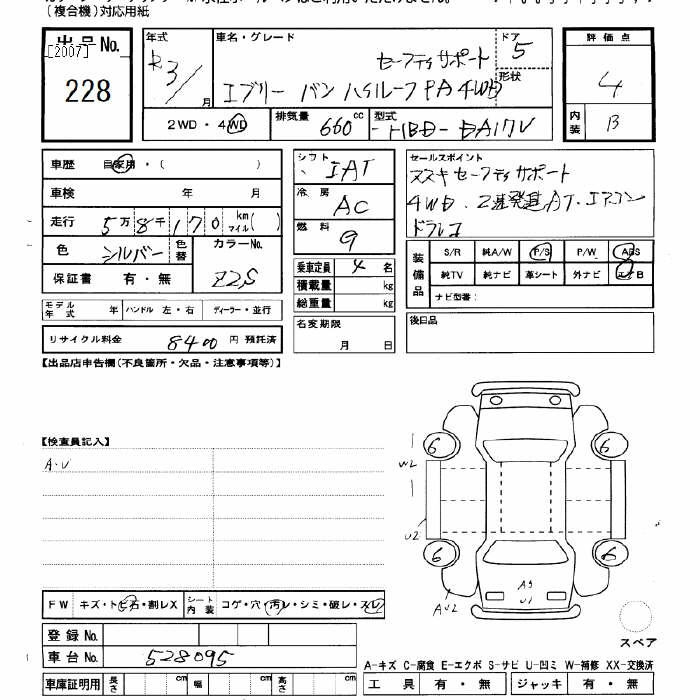 (複合機)対応用紙
出品No.
[2007]
228
年式
R3/
月
車名・グレード
セーフティサポート
エブリー バン ハイルーフ PA 4WD
ドア
5
形状
評価点
4
内装
B
2WD・4WD
排気量
660
cc
型式
-HBD-DA17V
車歴 自家用・( )
車検 年 月
走行 5万8千170 km マイル( )
色 シルバー 色替
カラーNo.
Z2S
保証書 有・無
モデル年式 年 ハンドル 左・右 ディーラー・並行
リサイクル料金 8400 円 預託済
シフト
IAT
冷房
AC
燃料
9
乗車定員 4 名
積載量 kg
総重量 kg
名変期限
月 日
セールスポイント
スズキセーフティサポート
4WD. 2速発進AT.エアコン
ドラレコ
装備品
S/R 純A/W P/S P/W ABS
純TV 純ナビ 革シート 外ナビ エアB
ナビ型番:
後日品
【出品店申告欄(不良箇所・欠品・注意事項等)】
【検査員記入】
A・U
6
6
W2
U2
6
6
AU2
A3
U1
スペア
FW キズ・トビ石・割レX
シート内装 コゲ・穴・汚レ・シミ・破レ・スレ
登録No.
車台No. 528095
車庫証明用 長さ cm 幅 cm 高さ cm
A-キズ C-腐食 E-エクボ S-サビ U-凹ミ W-補修 XX-交換済
工具 有・無 ジャッキ 有・無